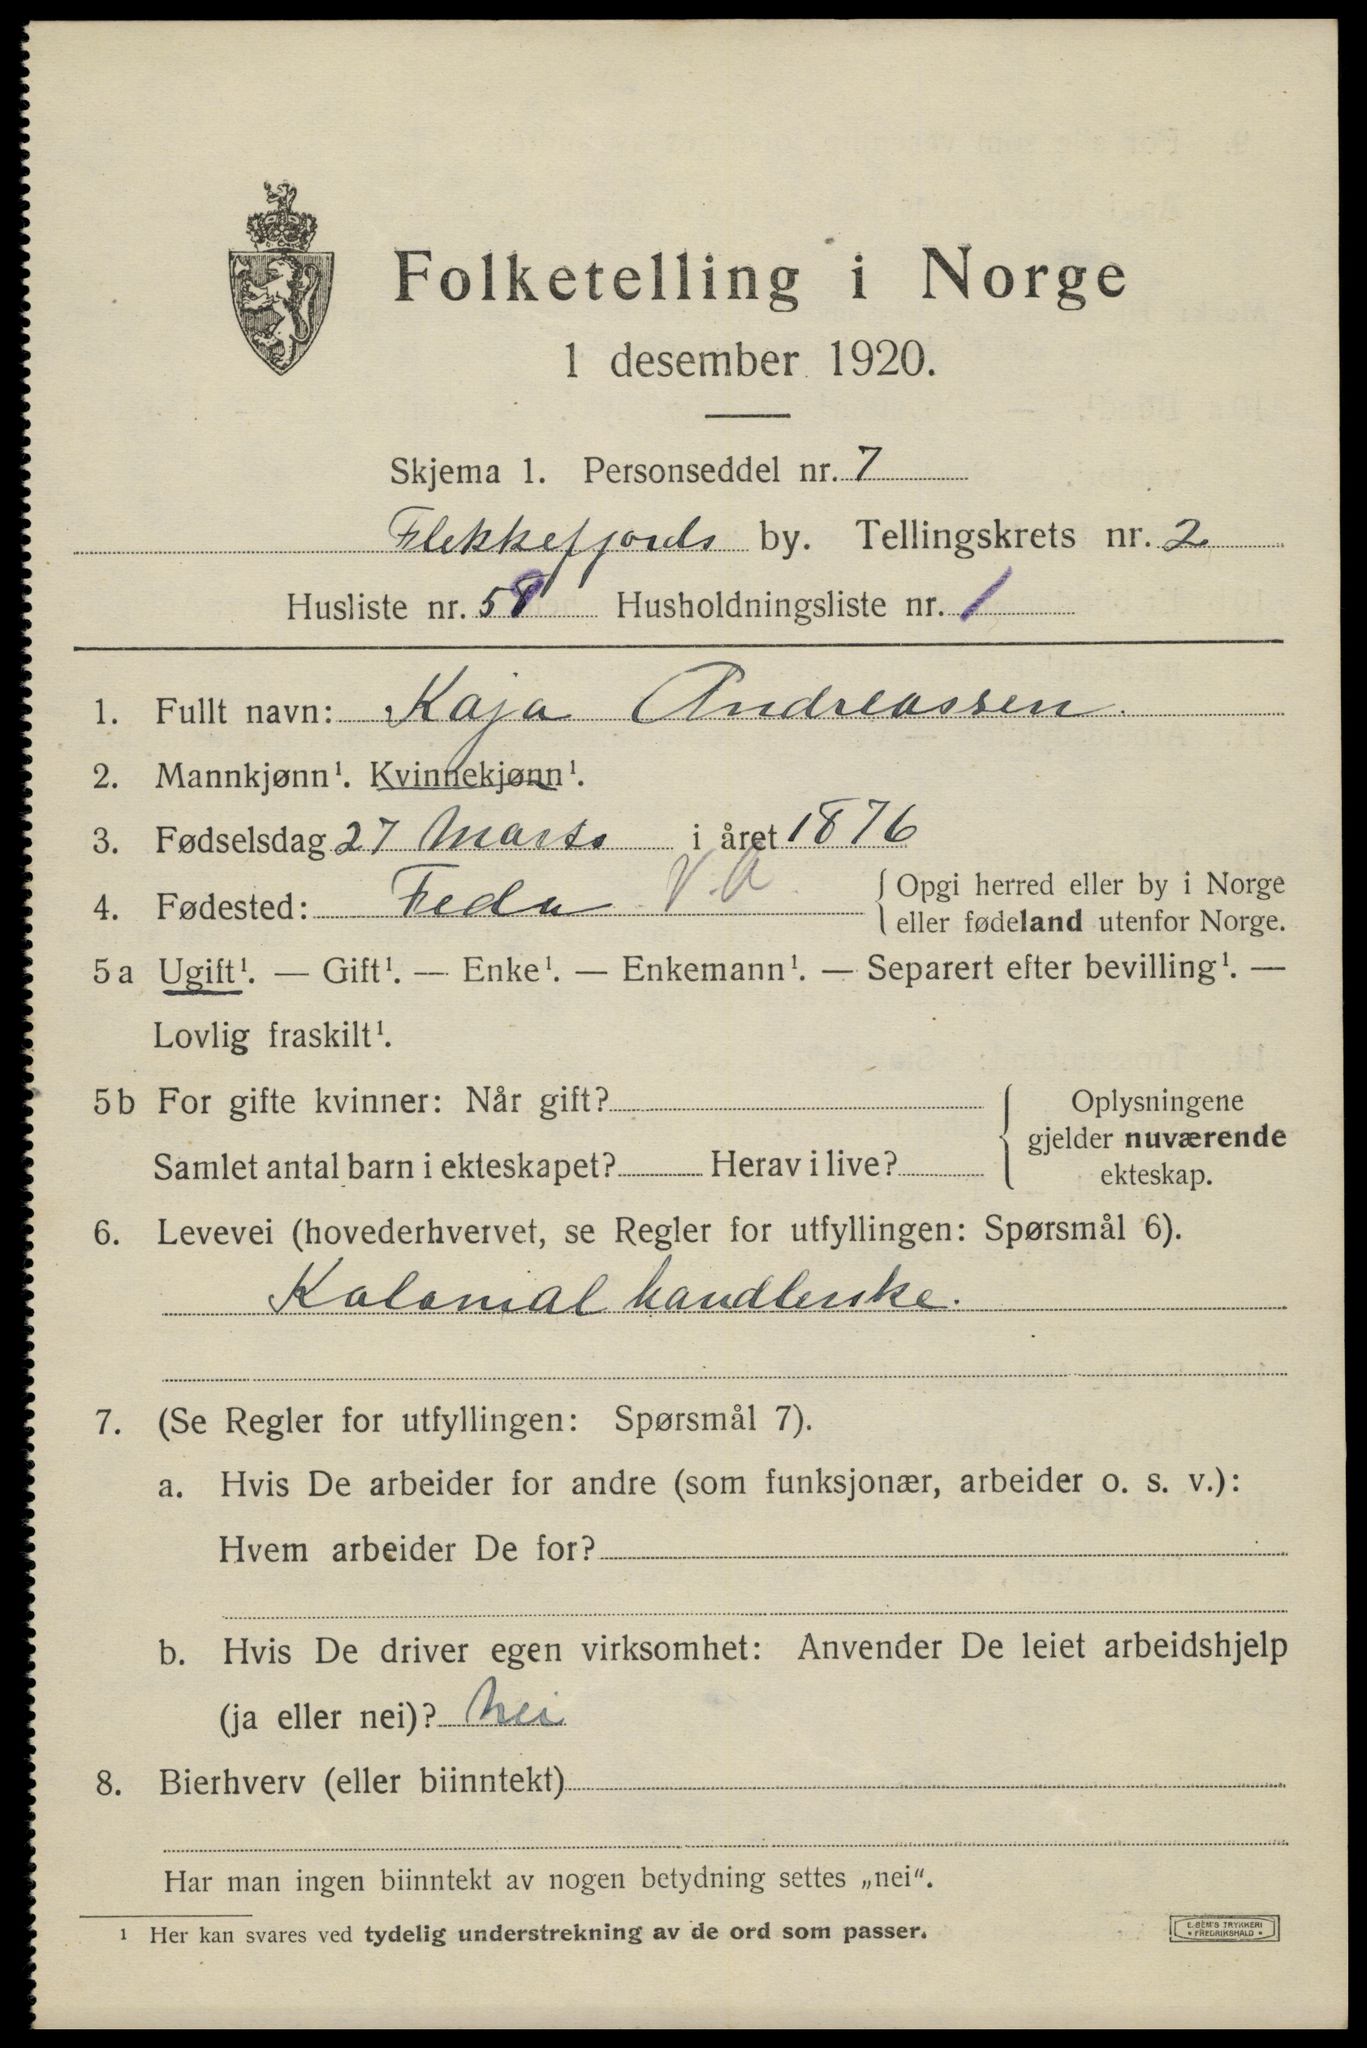 Folketelling i Norge
1 desember 1920.
Skjema 1. Personseddel nr. 7
Flekkefjords by. Tellingskrets nr. 2
Husliste nr. 58 Husholdningsliste nr. 1
1. Fullt navn: Kaja Andreassen.
2. Mannkjønn¹. Kvinnekjønn¹.
3. Fødselsdag 27 Marts i året 1876
4. Fødested: Feda V.A { Opgi herred eller by i Norge
eller fødeland utenfor Norge.
5 a Ugift¹. — Gift¹. — Enke¹. — Enkemann¹. — Separert efter bevilling¹. —
Lovlig fraskilt¹.
5 b For gifte kvinner: Når gift? { Oplysningene
gjelder nuværende
Samlet antal barn i ekteskapet? Herav i live?
ekteskap.
6. Levevei (hovederhvervet, se Regler for utfyllingen: Spørsmål 6).
Kolonial handlerske.
7. (Se Regler for utfyllingen: Spørsmål 7).
a. Hvis De arbeider for andre (som funksjonær, arbeider o. s. v.):
Hvem arbeider De for?
b. Hvis De driver egen virksomhet: Anvender De leiet arbeidshjelp
(ja eller nei)? Nei
8. Bierhverv (eller biinntekt)
Har man ingen biinntekt av nogen betydning settes „nei“.
¹ Her kan svares ved tydelig understrekning av de ord som passer.
E. SEM'S TRYKKERI
• FREDRIKSHALD •